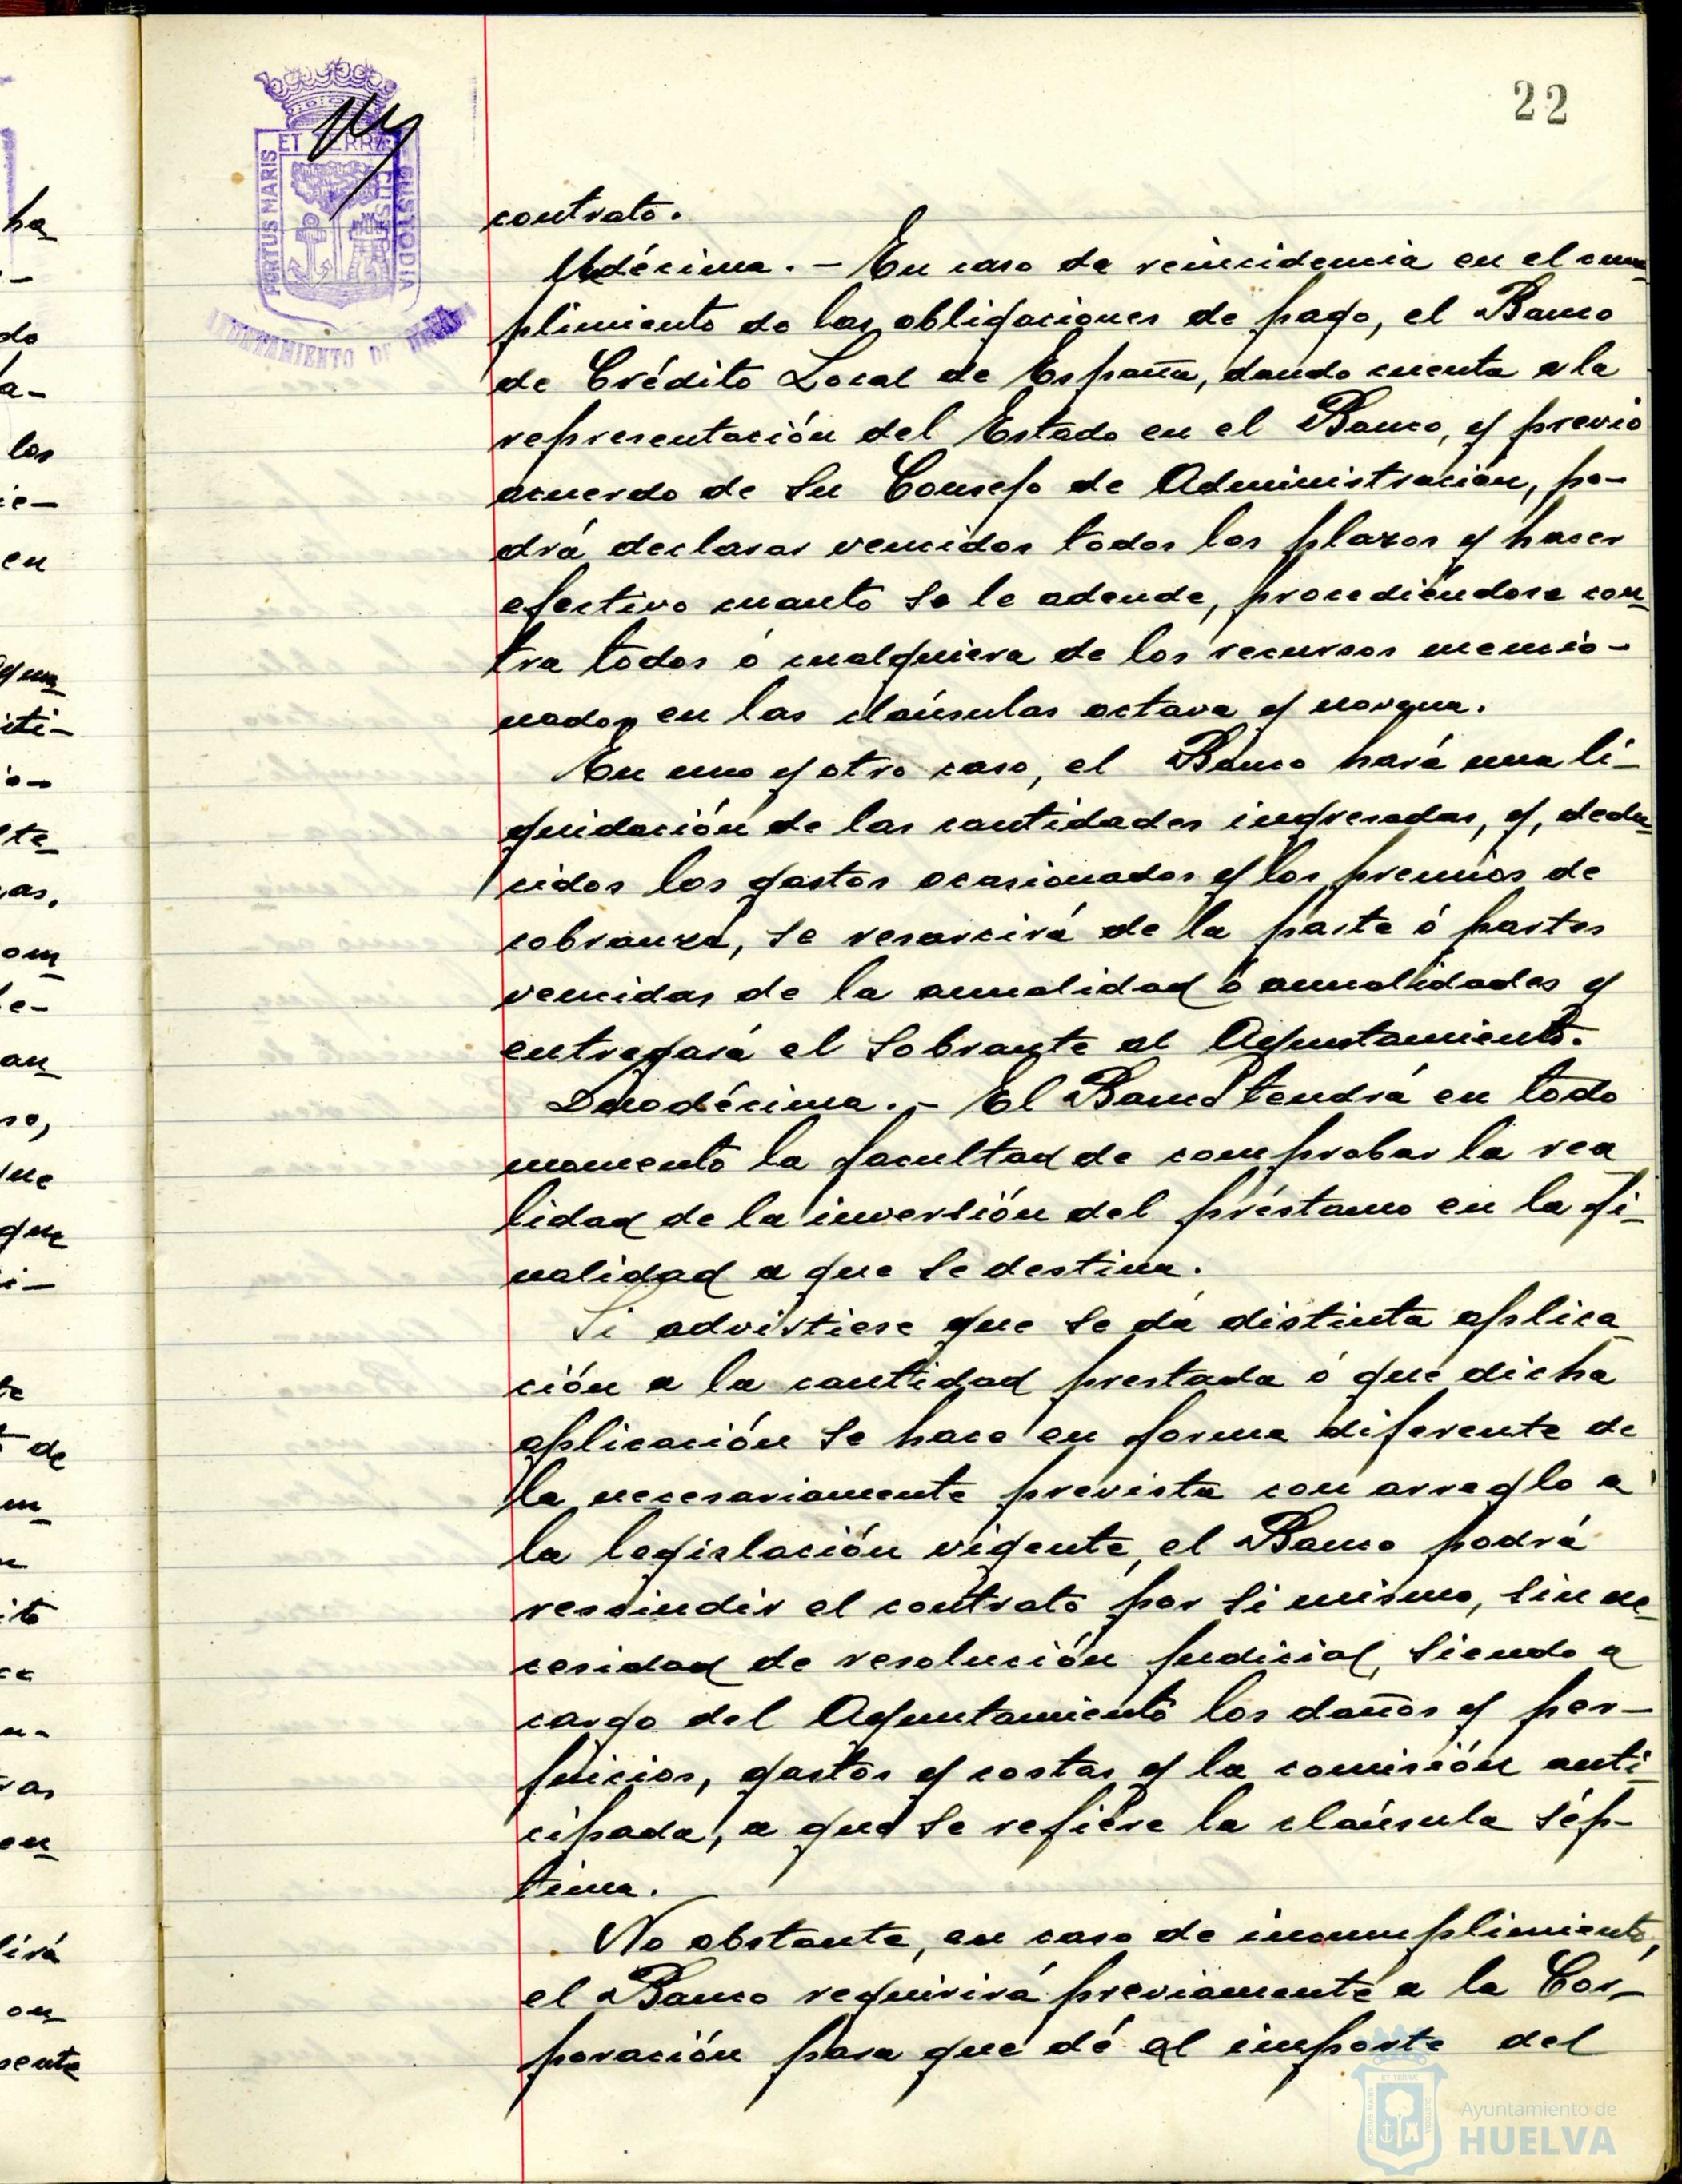 22
PORTUS MARIS ET TERRÆ CUSTODIA
AYUNTAMIENTO DE HUELVA
contrato.
Udécima. - En caso de reincidencia en el cum
plimiento de las obligaciones de pago, el Banco
de Crédito Local de España, dando cuenta a la
representación del Estado en el Banco, y previo
acuerdo de su Consejo de Administración, po-
drá declarar vencidos todos los plazos y hacer
efectivo cuanto se le adeude, procediéndose con
tra todos ó cualquiera de los recursos mencio-
nados en las claúsulas octava y novena.
En uno y otro caso, el Banco hará una li-
quidación de las cantidades ingresadas, y, dedu
cidos los gastos ocasionados y los premios de
cobranza, se resarcirá de la parte ó partes
vencidas de la anualidad ó anualidades y
entregará el sobrante al Ayuntamiento.
Duodécima. - El Banco tendrá en todo
momento la facultad de comprobar la rea
lidad de la inversión del préstamo en la fi-
nalidad a que se destina.
Si advirtiese que se da distinta aplica
ción a la cantidad prestada ó que dicha
aplicación se hace en forma diferente de
la necesariamente prevista con arreglo a
la legislación vigente, el Banco podrá
rescindir el contrato por si mismo, sin ne
cesidad de resolución judicial, siendo a
cargo del Ayuntamiento los daños y per-
juicios, gastos y costas y la comisión anti
cipada, a que se refiere la claúsula sép-
tima.
No obstante, en caso de incumplimiento,
el Banco requirirá previamente a la Cor-
poración para que dé al importe del
ha
do
a-
los
ie-
en
iti-
io-
te
as,
om
e-
an
so,
que
i-
te
de
ito
ras
en
irá
on
sente
Ayuntamiento de
HUELVA